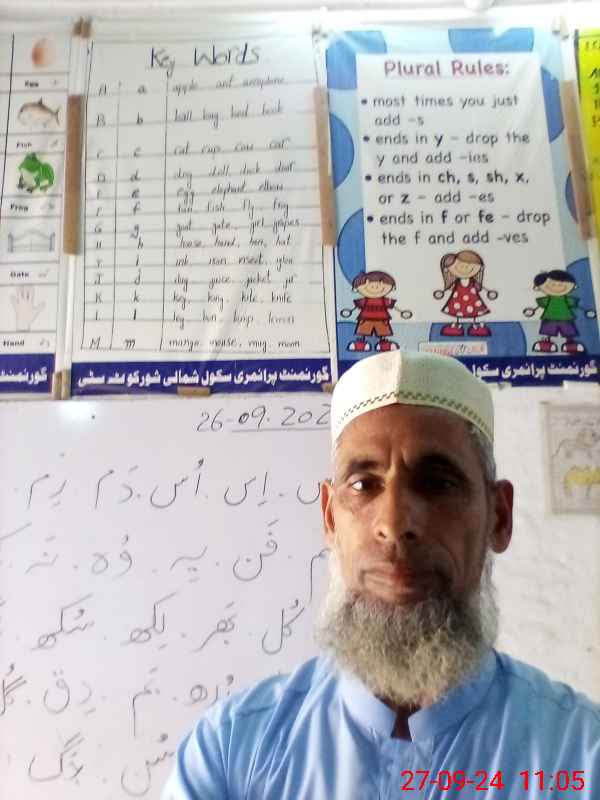 Egg
Fish
Frog
Gate
Hand
گورنمنٹ
Key Words
A a apple ant aeroplane
B b ball bag bed book
c cat cup cow car
D d dog doll duck door
e egg elephant elbow
F f fan fish fly frog
G g goat gate girl grapes
H h house hand hen hat
I i ink iron insect
J j jug juice jacket jar
K k key king kite knife
L l leg lion lamp lemon
M m mango mouse mug moon
گورنمنٹ پرائمری سکول شمالی شورکوٹ سٹی
Plural Rules:
• most times you just
add -s
• ends in y - drop the
y and add -ies
• ends in ch, s, sh, x,
or z - add -es
• ends in f or fe - drop
the f and add -ves
گورنمنٹ پرائمری سکول
26-09-202
اِس . اُس . دَم . زِم
فَن . یِہ . وُہ . نَہ
کُل . بَھر . لِکھ . سُکھ
بُڑھ . نَم . دِق . گُل
سُن
27-09-24 11:05